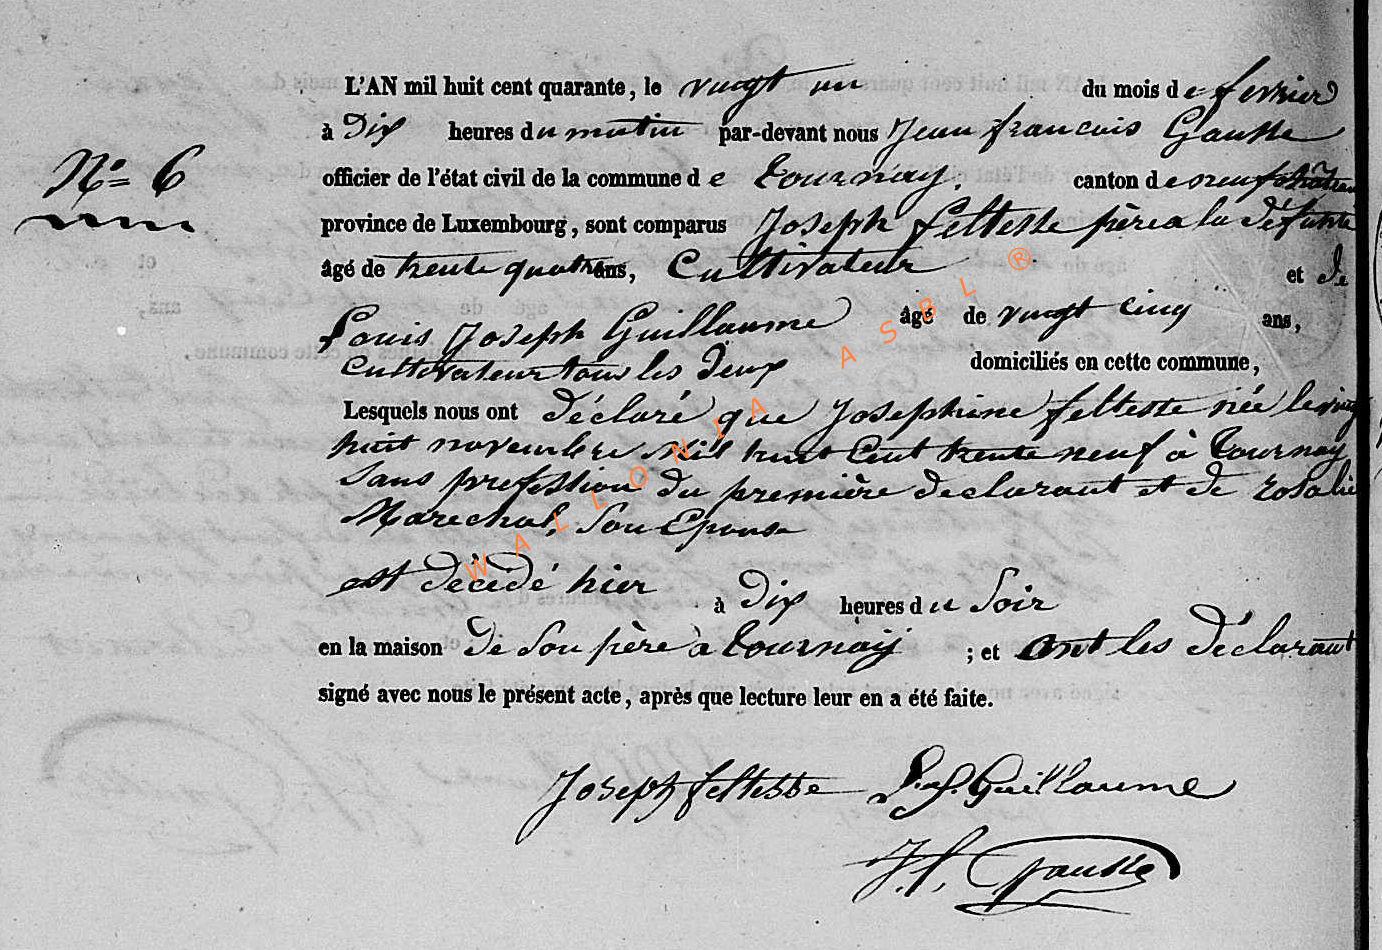 L'AN mil huit cent quarante, le vingt un du mois de fevrier
à Dix heures du matin par-devant nous Jean francois Gausse
N° 6
officier de l'état civil de la commune de tournay. canton de neufchâteau
province de Luxembourg, sont comparus Joseph feltesse père a la défunte
âgé de trente quatre ans, Cultivateur et de
Louis Joseph Guillaume âgé de vingt cinq ans,
Cultivateur tous les deux domiciliés en cette commune,
Lesquels nous ont déclaré que Josephine feltesse née le vingt
huit novembre Mil huit Cent trente neuf à tournay
Sans profession du première declarant et de rosalie
Marechal, Son Epouse
est décédé hier à Dix heures du Soir
en la maison de Son père à tournay ; et ont les déclarant
signé avec nous le présent acte, après que lecture leur en a été faite.
Joseph feltesse L. J. Guillaume
J. f. Gausse
WALLONIA ASBL ®